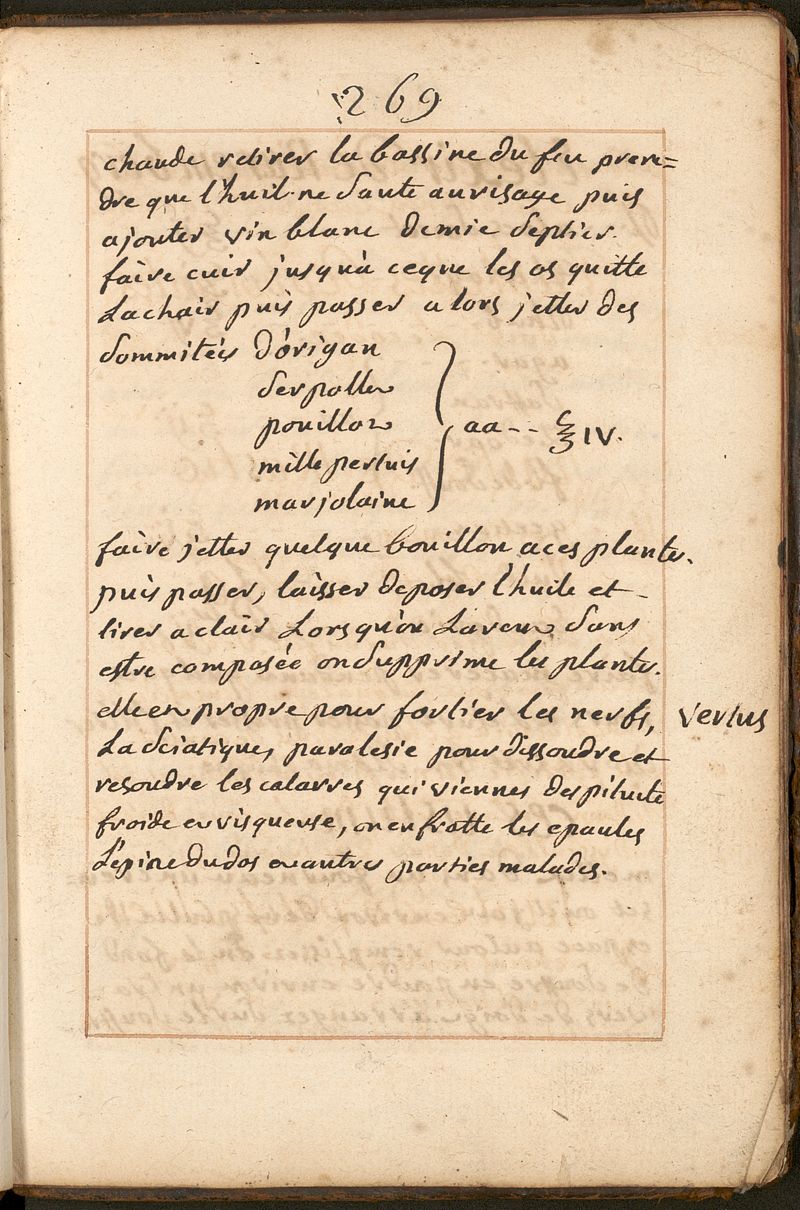 269
chaude retirer la bassine du feu pren=
dre que l'huil ne saute au visage puis
ajouter vin blanc demie septier.
faire cuir jusqu'à ce que les os quitte
la chair puis passer alors jetter des
sommités d'origan
serpollet
pouillot
mille pertuis
marjolaine
aa -- ℥ IV.
faire jetter quelque bouillon a ces plantes.
puis passer, laisser deposer l'huile et
tirer a clair Lors qu'on La veut sans
estre composée on supprime les plantes.
elle est propre pour fortier les nerfs,
Vertus
La Sciatique, paralesie pour dissoudre et
resoudre les catarres qui viennes des pituite
froide et visqueuse, on en frotte les epaules
L'epine du dos et autres parties malades.